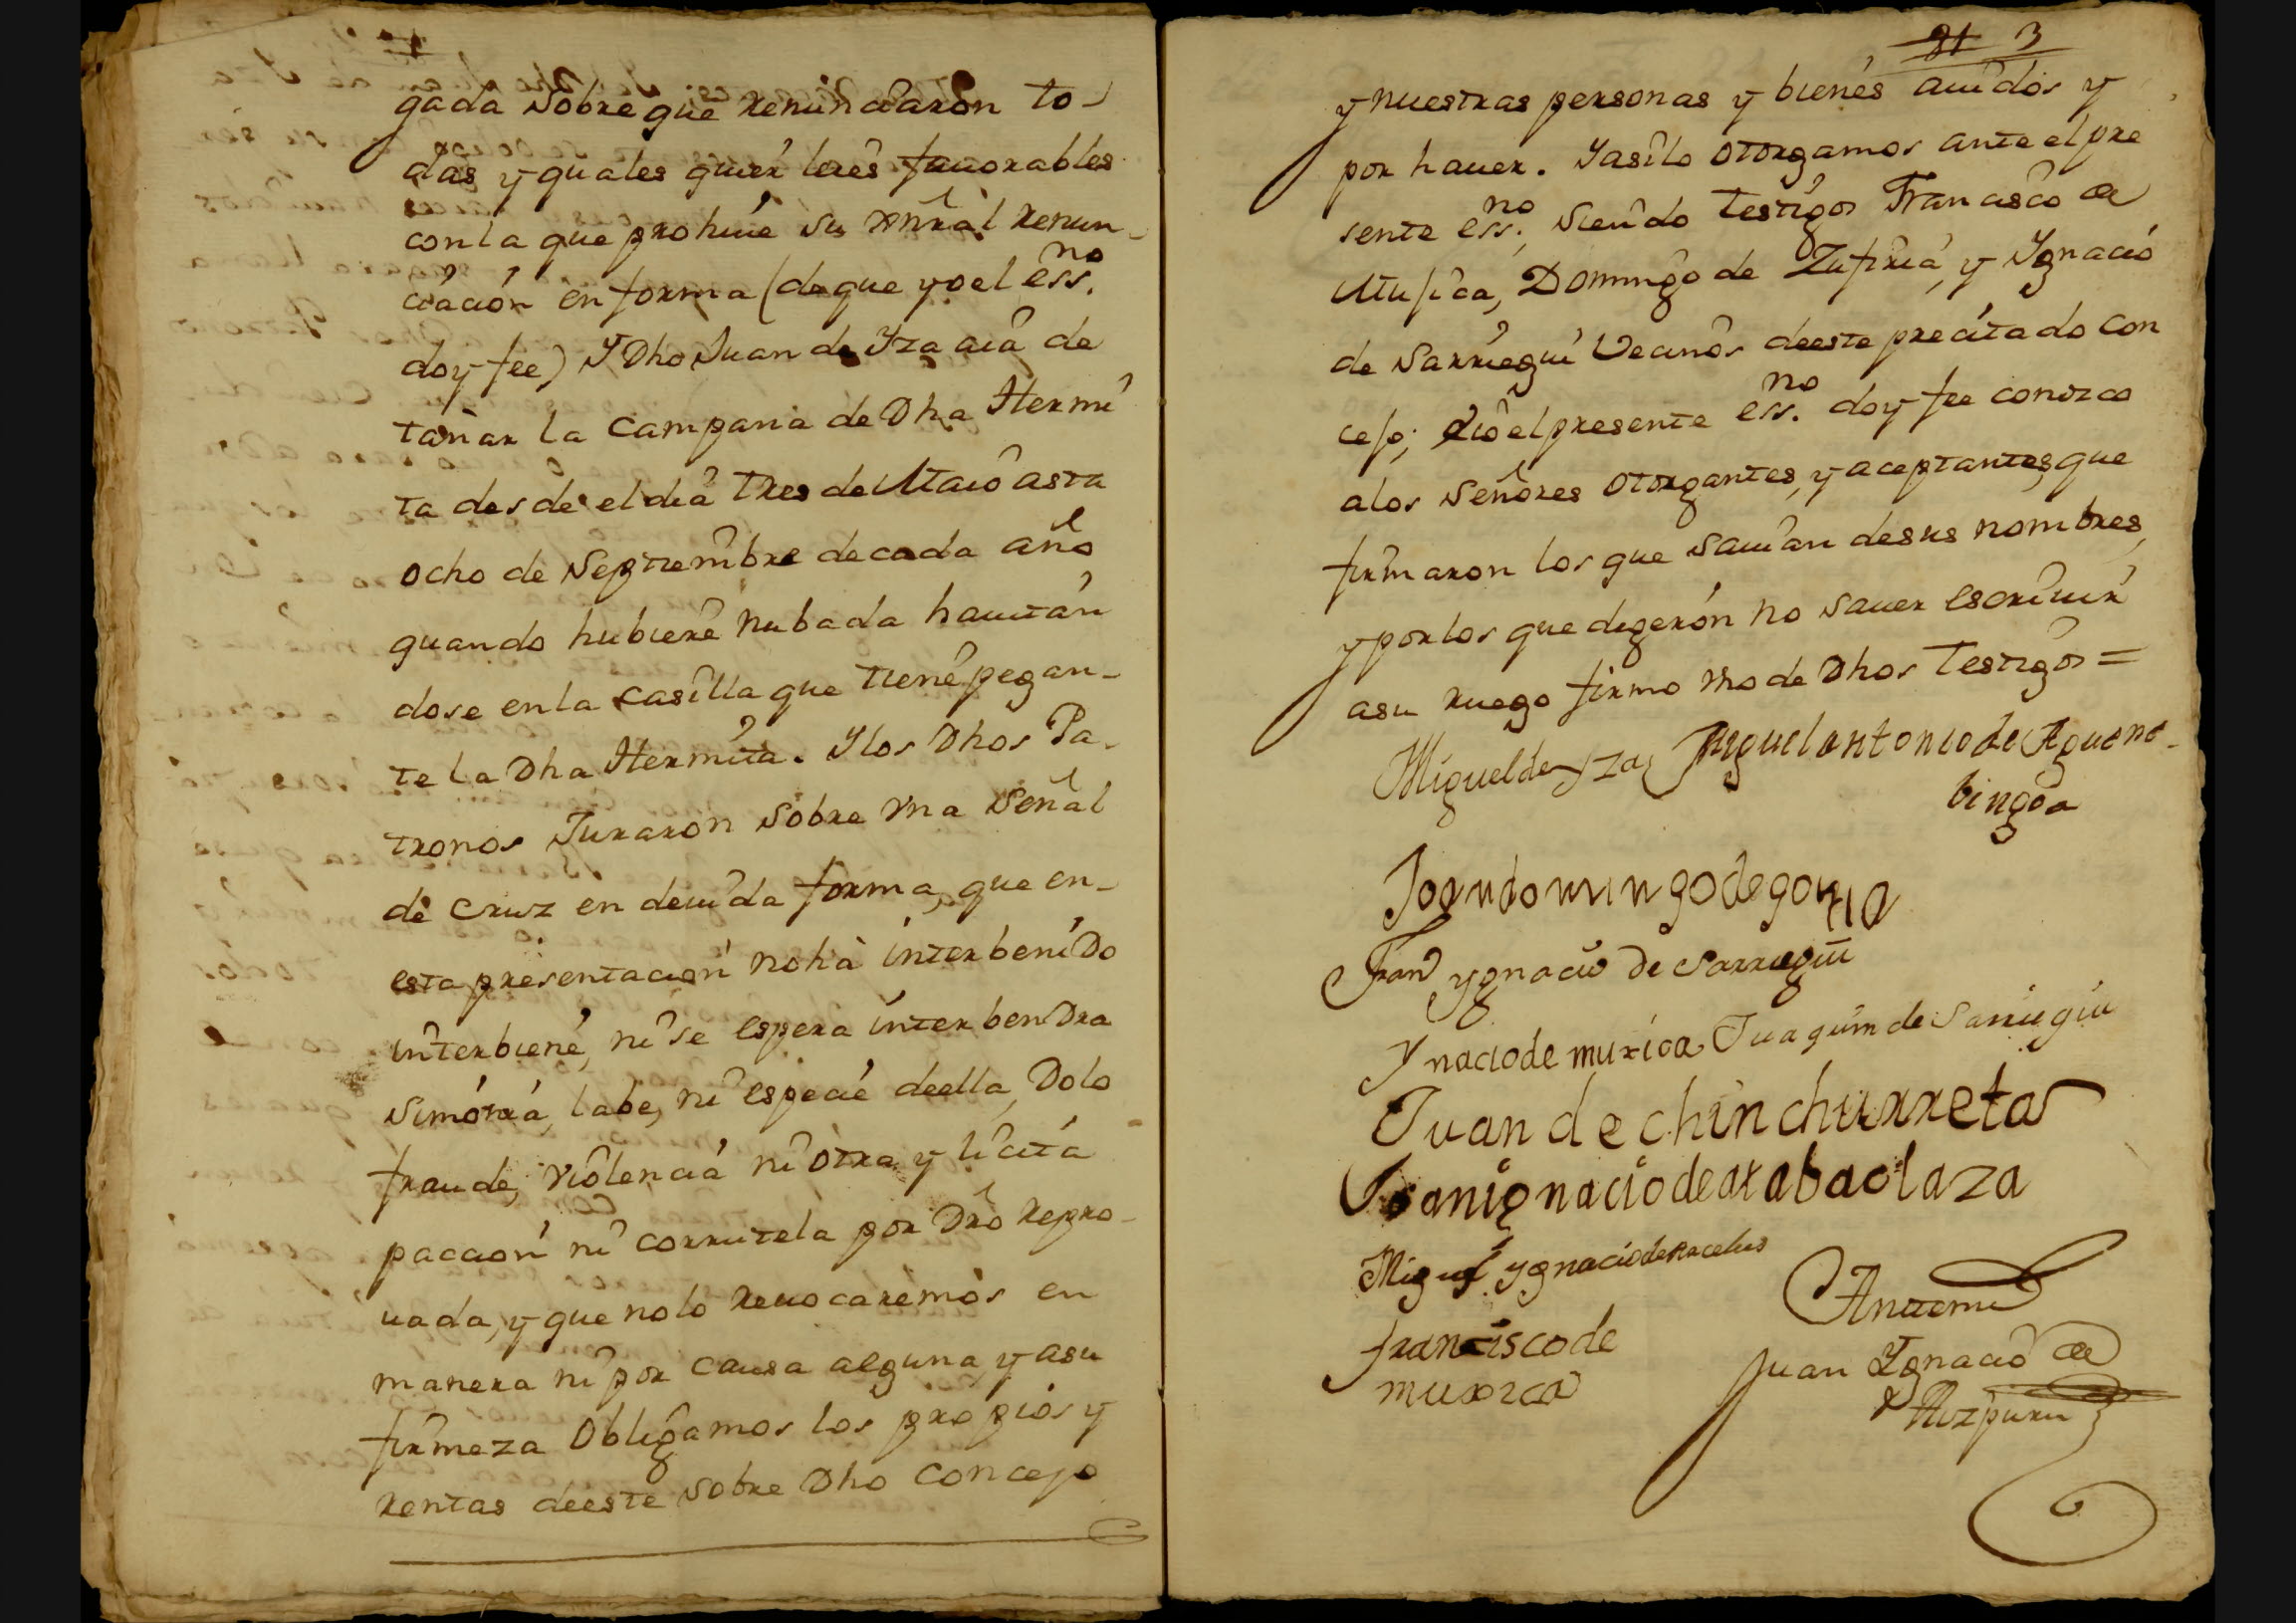 gada sobre que renunciaron to-
das y quales quier leies fauorables
con la que prohiue su gñral renun-
ciación en forma (de que yo el essno.
doy fee) Y Dho Juan de Yza aia de
tañar la campana de Dha Hermi
ta desde el dia tres de Maio asta
ocho de Septiembre de cada año
quando hubiere nubada hauitán
dose en la casilla que tiene pegan-
te la Dha Hermita. Y los Dhos Pa-
tronos Juraron sobre vna señal
de Cruz en deuida forma, que en-
esta presentacion no hà interbenido
interbiene, ni se espera interbendra
simonia, labe, ni especie de ella, Dolo
fraude, violencia ni otra ylicita
paccion ni corrutela por Dro repro-
uada, y que no lo reuocaremos en
manera ni por causa alguna, y a su
firmeza obligamos los propios y
rentas de este sobre Dho concejo
81 3
y nuestras personas y bienes auidos y
por hauer. Y asi lo otorgamos ante el pre
sente essno., siendo testigos Francisco de
Mujica, Domingo de Zufiria, y Ygnacio
de Sarriegui Vecinos de este precitado con
cejo; Yo el presente essno. doy fee conozco
a los señores otorgantes, y aceptantes, que
firmaron los que sauian de sus nombres,
y por los que digeron no sauer escriuir
a su ruego firmo vno de Dhos testigos =
Miguel de Yza Miguel antonio de Aguene-
bingoa
Joan domingo de goria
Fran Ygnacio de Sarriegui
Ynacio de muxica Juaquin de Sarriegui
Juan de chinchurreta
Joan ignacio de arabaolaza
Miguel Ygnacio de Racelus
francisco de
muxica
Antemi
Juan Ygnacio de
Aizpuru